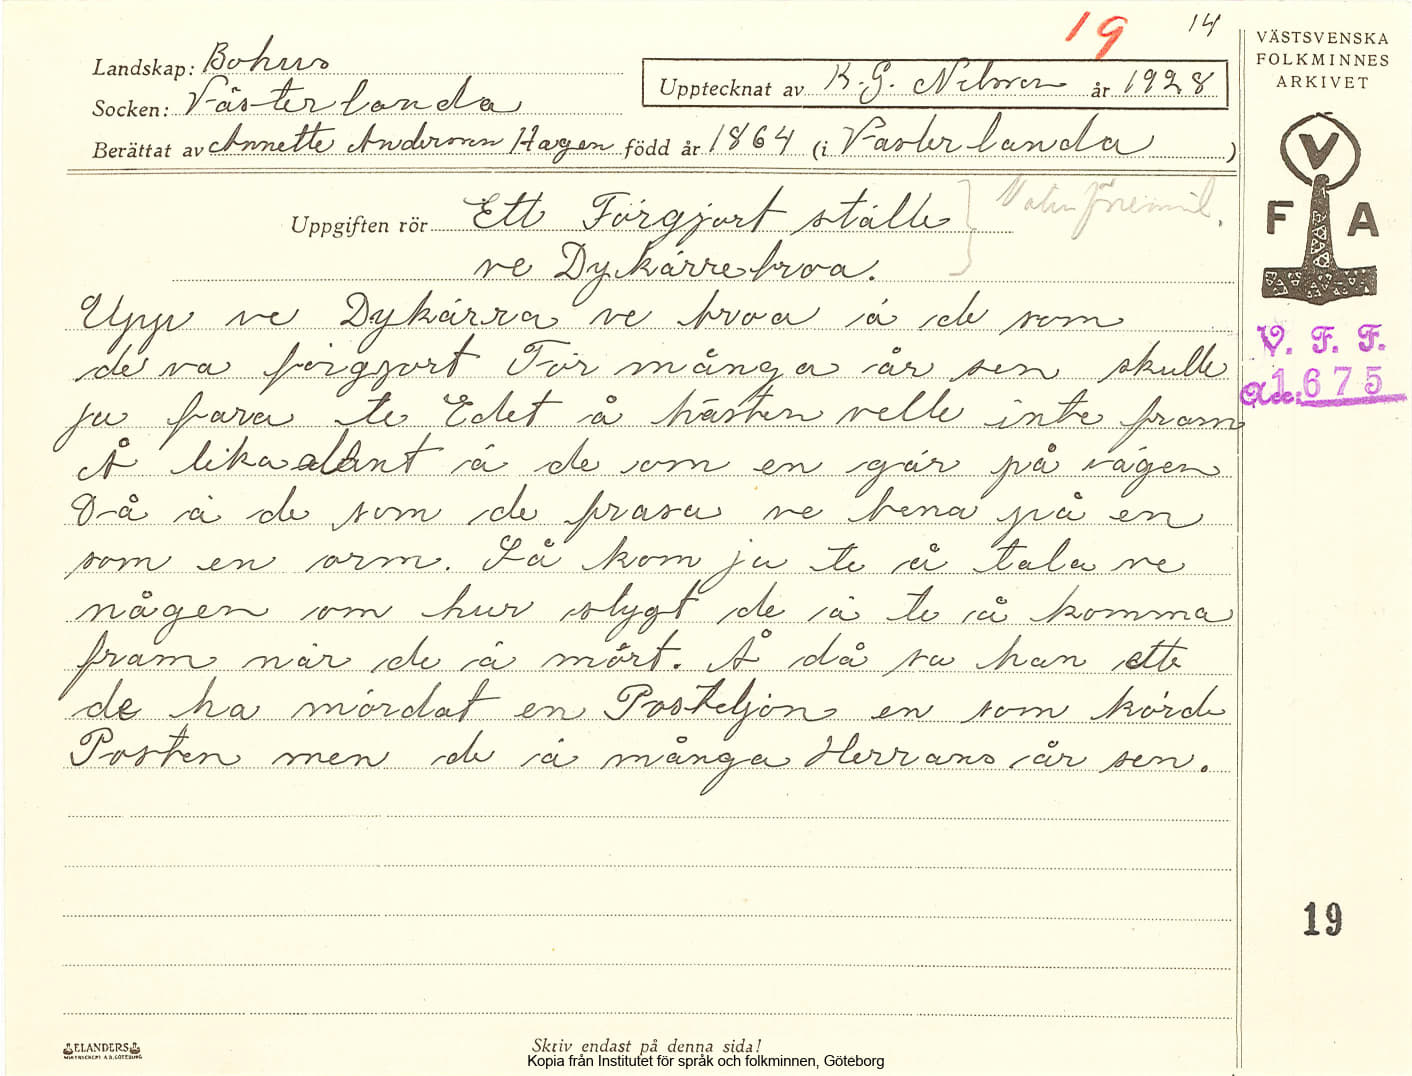 19 14
Landskap: Bohus
Upptecknat av K. G. Nilsson år 1928
Socken: Västerlanda
Berättat av Annette Andersson Hagen född år 1864 (i Västerlanda )
Uppgiften rör Ett Förgjort ställe
ve Dykärrebroa.
Upp ve Dykärra ve broa ä de som
de va förgjort För många år sen skulle
ja fara te Edet å hästen velle inte fram
Å lika alänt ä de om en går på vägen
Då ä de som de frasa ve bena på en
som en orm. Så kom ja te å tala ve
någen om hur stygt de ä te å komma
fram när de ä mört. Å då sa han atte
de ha mördat en Posteljon en som körde
Posten men de ä många Herrans år sen.
VÄSTSVENSKA
FOLKMINNES
ARKIVET
V
F A
V. F. F.
Acc: 1675
19
ELANDERS
Skriv endast på denna sida!
Kopia från Institutet för språk och folkminnen, Göteborg